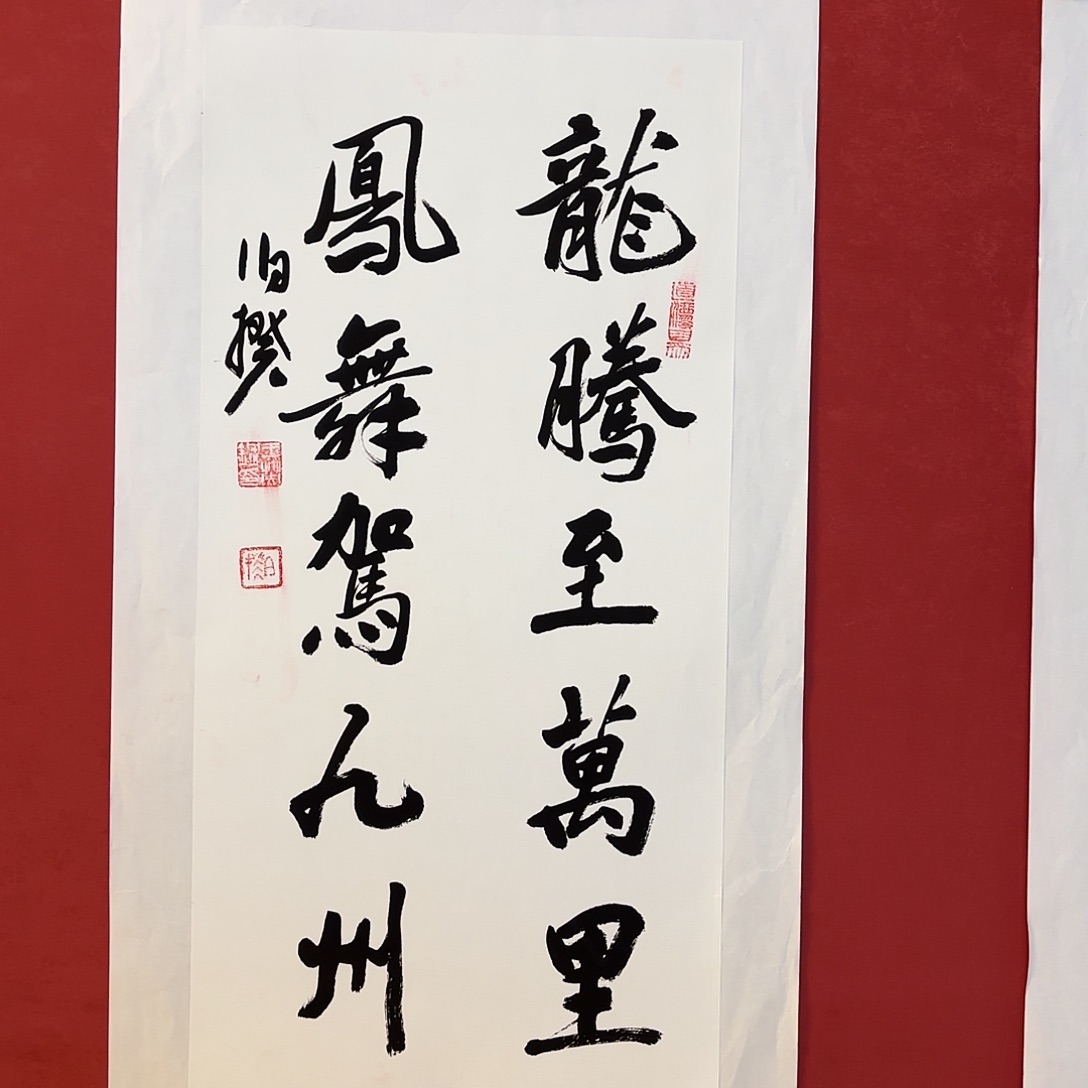 龍騰至萬里
鳳舞駕九州
伯撰